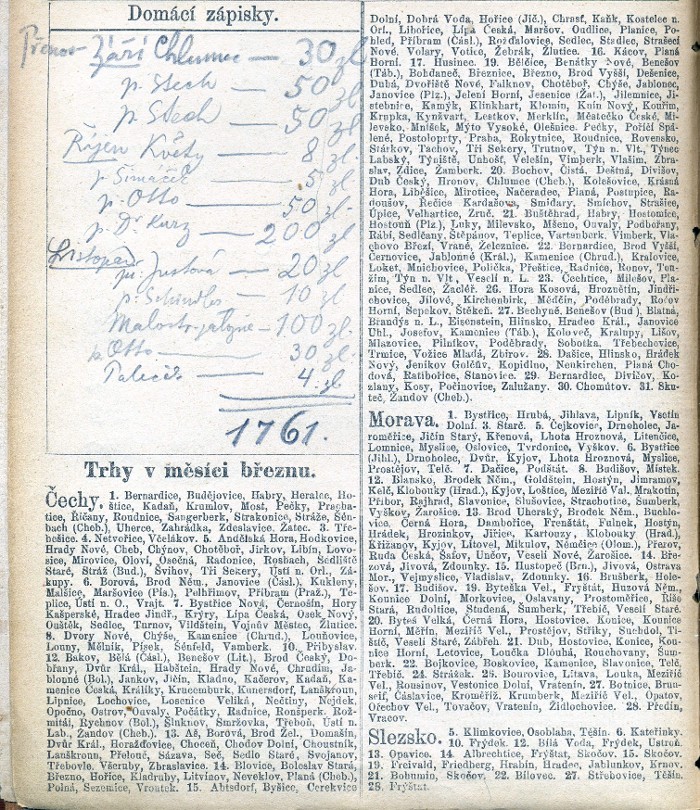 Domácí zápisky.
Přenos Září Chlumec — 30 zl
p. Stech — 50 zl
p. Stech — 50 zl
Říjen Květy — 8 zl.
p. Šimáček 5 zl.
p. Otto 50 zl.
p. Dr Kurz — 200 zl
Listopad
— 20 zl
p. Schindler — 10 zl
— 100 zl.
p. Otto — 30 zl.
Paleček 4 zl
1761.
Trhy v měsíci březnu.
Čechy. 1. Bernardice, Budějovice, Habry, Heralec, Ho-
štice, Kadaň, Krumlov, Most, Pečky, Pracha-
tice, Říčany, Roudnice, Sangerberk, Strakonice, Stráže, Šén-
bach (Cheb.), Uherce, Zahrádka, Zdeslavice, Žatec. 3. Tře-
bešice. 4. Netvořice, Včelákov. 5. Andělská Hora, Hodkovice,
Hrady Nové, Cheb, Chýnov, Chotěboř, Jirkov, Libín, Lovo-
sice, Mirovice, Olovi, Osečná, Radonice, Rosbach, Sedliště
Staré, Stráž (Bud.), Švihov, Tři Sekery, Ústí n. Orl., Zá-
kupy. 6. Borová, Brod Něm., Janovice (Čásl.), Kukleny,
Malšice, Maršovice (Pís.), Pelhřimov, Příbram (Praž.), Te-
plice, Ústí n. O., Vrajt. 7. Bystřice Nová, Černošín, Hory
Kašperské, Hradec Jindř., Krýry, Lípa Česká, Osek Nový,
Ouštěk, Sedlec, Turnov, Vildštein, Vojnův Městec, Žlutice.
8. Dvory Nové, Chýše, Kamenice (Chrud.), Louňovice,
Louny, Mělník, Písek, Šénfeld, Vamberk. 10. Přibyslav.
12. Bakov, Bělá (Čásl.), Benešov (Lit.), Brod Český, Do-
břany, Dvůr Král., Habštein, Hrady Nové, Chrudim, Ja-
blonné (Bol.), Jankov, Jičín, Kladno, Kačerov, Kadaň, Ka-
menice Česká, Králíky, Kruceمburk, Kunersdorf, Lanškroun,
Lipnice, Lochovice, Losenice Veliká, Nečtiny, Nejdek,
Opočno, Ostrov, Ouvaly, Počátky, Radnice, Ronšperk, Rož-
mitál, Rychnov (Bol.), Šluknov, Smržovka, Třeboň, Ústí n.
Lab., Žandov (Cheb.). 13. Aš, Borová, Brod Žel., Domašín,
Dvůr Král., Horažďovice, Choceň, Chodov Dolní, Choustník,
Lanškroun, Přelouč, Sázava, Seč, Sedlo Staré, Svojanov,
Třebovle, Všeruby, Zbraslavice. 14. Blovice, Boleslav Stará,
Březno, Hořice, Kladruby, Litvínov, Neveklov, Planá (Cheb.),
Polná, Sezemice, Vroutek. 15. Abtsdorf, Byšice, Cerekvice
Dolní, Dobrá Voda, Hořice (Jič.), Chrast, Kaňk, Kostelec n.
Orl., Libořice, Lípa Česká, Maršov, Oudlice, Planice, Po-
běžd, Příbram (Čásl.), Rožďalovice, Sedlec, Stadlec, Strašecí
Nové, Volary, Votice, Žebrák, Žlutice. 16. Kácov, Planá
Horní. 17. Husinec. 19. Bělčice, Benátky Nové, Benešov
(Táb.), Bohdaneč, Březnice, Březno, Brod Vyšší, Dešenice,
Dubá, Dvořiště Nové, Falknov, Chotěboř, Chýše, Jablonec,
Janovice (Plz.), Jelení Horní, Jesenice (Žat.), Jilemnice, Ji-
stebnice, Kamýk, Klinkhart, Klomín, Knín Nový, Kouřim,
Krupka, Kynžvart, Lestkov, Merklín, Městečko České, Mi-
levsko, Mníšek, Mýto Vysoké, Olešnice, Pečky, Poříčí Spá-
lené, Postoloprty, Praha, Rokytnice, Roudnice, Rovensko,
Stárkov, Tachov, Tři Sekery, Trutnov, Týn n. Vlt., Týnec
Labský, Týniště, Unhošť, Velešín, Vimberk, Vlašim, Zbra-
slav, Zdice, Žamberk. 20. Bochov, Čistá, Deštná, Divišov,
Dub Český, Hronov, Chlumec (Cheb.), Kolešovice, Krásná
Hora, Liběšice, Mirotice, Načeradec, Planá, Postupice, Ra-
doušov, Řečice Kardašova, Smidary, Smíchov, Strašice,
Úpice, Velhartice, Zruč. 21. Buštěhrad, Habry, Hostomice,
Hostouň (Plz.), Luky, Milevsko, Mšeno, Ouvaly, Podbořany,
Rábí, Sedlčany, Štěpánov, Teplice, Vartenberk, Vimberk, Vla-
chovo Březí, Vrané, Železnice. 22. Bernardice, Brod Vyšší,
Černovice, Jablonné (Král.), Kamenice (Chrud.), Kralovice,
Loket, Mnichovice, Polička, Přeštice, Radnice, Ronov, Ten-
žim, Týn n. Vlt., Veselí n. L. 23. Čechtice, Milešov, Pla-
nice, Sedlec, Žacléř. 26. Hora Kosová, Hroznětín, Jindři-
chovice, Jílové, Kirchenbirk, Měděčín, Poděbrady, Rožov
Horní, Šepekov, Štěkeň. 27. Bechyně, Benešov (Bud.), Blatná,
Brandýs n. L., Eisenstein, Hlinsko, Hradec Král., Janovice
Uhl., Josefov, Kamenice (Táb.), Kolovеč, Kralupy, Lišov,
Mlazovice, Pilníkov, Poděbrady, Sobotka, Třebechovice,
Trmice, Vožice Mladá, Zbirov. 28. Dašice, Hlinsko, Hrádek
Nový, Jeníkov Golčův, Kopidlno, Neukirchen, Planá Cho-
dová, Ratibořice, Stanovice. 29. Bernardice, Divičov, Ko-
zlany, Kosy, Počinovice, Zalužany. 30. Chomútov. 31. Sku-
teč, Žandov (Cheb.).
Morava. 1. Bystřice, Hrubá, Jihlava, Lipník, Vsetín
Dolní. 3. Starč. 5. Čejkovice, Drnholec, Ja-
roměřice, Jičín Starý, Křenová, Lhota Hroznová, Litenčice,
Lomnice, Myslice, Oslovice, Tvrdonice, Vyškov. 6. Bystřice
(Jihl.), Drnholec, Dvůr, Kyjov, Lhota Hroznová, Myslice,
Prostějov, Telč. 7. Dačice, Podštát. 8. Budišov, Místek.
12. Blansko, Brodek Něm., Goldštein, Hostýn, Jimramov,
Kelč, Klobouky (Hrad.), Kyjov, Loštice, Meziříč Val. Mrakotín,
Příbor, Rajhrad, Slavonice, Slušovice, Strachotice, Šumberk,
Vyškov, Žarošice. 13. Brod Uherský, Brodek Něm., Buchlo-
vice, Černá Hora, Dambořice, Frenštát, Fulnek, Hostýn,
Hrádek, Hrozinkov, Jiřice, Kartouzy, Klobouky (Hrad.),
Křižanov, Kyjov, Litovel, Mikulov, Němčice (Olom.), Přerov,
Ruda Česká, Šafov, Unčov, Veselí Nové, Žarošice. 14. Bře-
zová, Jivová, Zdounky. 15. Hustopeč (Brn.), Jivová, Ostrava
Mor., Vejmyslice, Vladislav, Zdounky. 16. Brušberk, Hole-
šov. 17. Budišov. 19. Byteška Vel., Fryšták, Huzová Něm.,
Konnice Dolní, Morkovice, Oslavany, Prostoměřice, Říše
Stará, Rudoltice, Studená, Šumberk, Třebíč, Veselí Staré.
20. Byteš Velká, Černá Hora, Hostovice, Konice, Kounice
Horní, Měřín, Meziříč Vel., Prostějov, Stříky, Suchdol, Ti-
štič, Veselí Staré, Zábřeh. 21. Dub, Hostovice, Konice, Kou-
nice Horní, Letovice, Loučka Dlouhá, Rouchovany, Šum-
berk. 22. Bojkovice, Boskovice, Kamenice, Slavonice, Telč,
Třebíč. 24. Strážek. 26. Bourovice, Litava, Louka, Meziříč
Vel., Rousinov, Vestonice Dolní, Vratenín. 27. Botnice, Brum-
seif, Čáslavice, Kroměříž, Krumberk, Meziříč Vel., Opatov,
Ořechov Vel., Tovačov, Vratenín, Židlochovice. 28. Předín,
Vracov.
Slezsko. 5. Klimkovice, Osoblaha, Těšín. 6. Kateřinky.
10. Frýdek. 12. Bílá Voda, Frýdek, Ustroň.
13. Opavice. 14. Albrechtice, Frýštat, Skočov. 15. Skočov.
19. Freivald, Friedberg, Hrabín, Hradec, Jablunkov, Krnov.
21. Bohumín, Skočov. 22. Bílovec. 27. Střebovice, Těšín.
28. Frýštat.